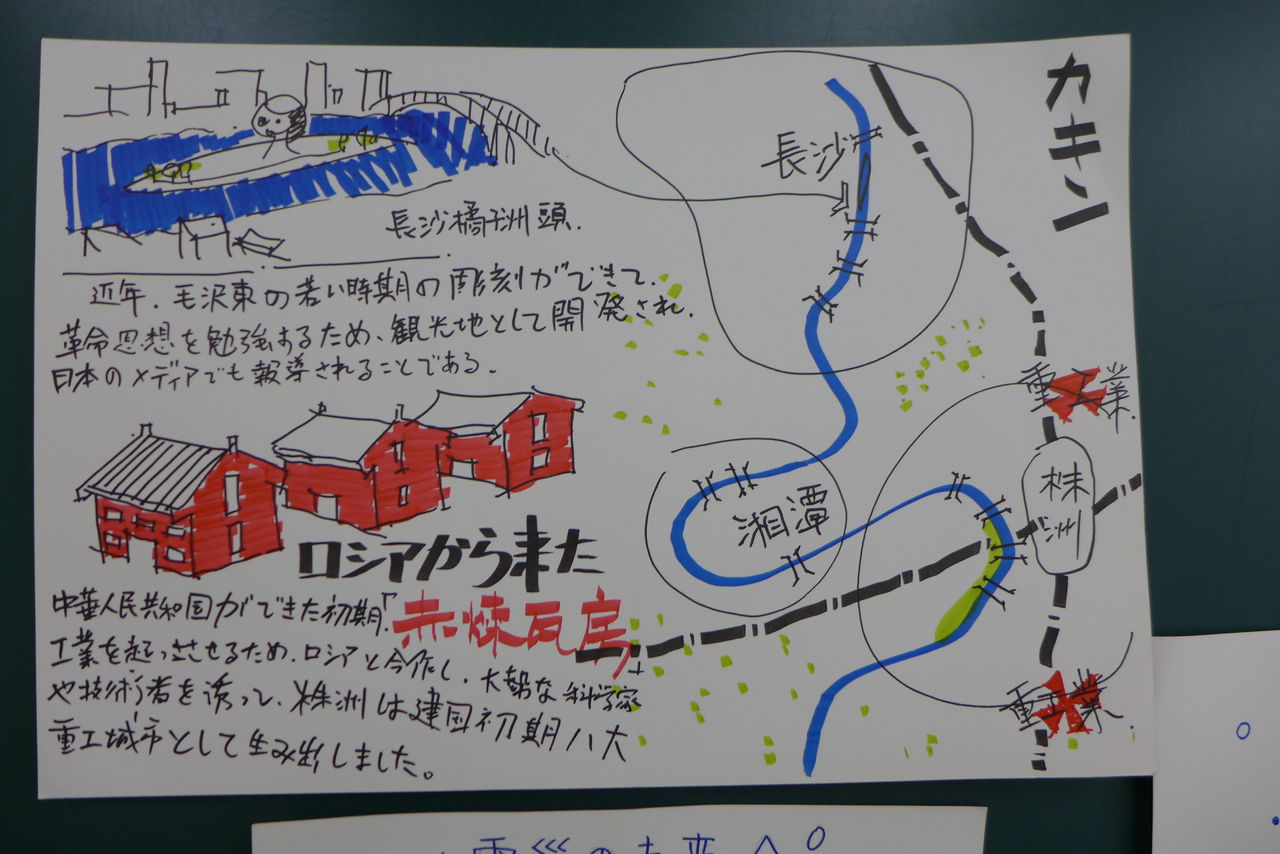 カキン
長沙
長沙橘子洲頭.
近年.毛沢東の若い時期の彫刻ができて.
革命思想を勉強するため、観光地として開発され.
日本のメディアでも報導されることである.
重工業
株洲
湘潭
ロシアから来た
「赤煉瓦房」
中華人民共和国ができた初期.
工業を起こさせるため.ロシアと合作し.大勢な科学家
や技術者を誘って、株洲は建国初期八大
重工城市として生み出しました。
重工業